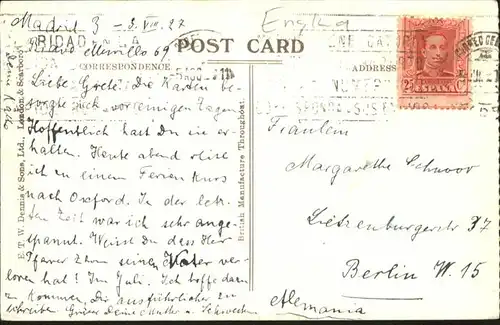 Madrid 3 - 3. VIII. 27
Engka
POST CARD
CORRESPONDENCE
ADDRESS
Liebe Grete! Die Karten be-
sorgte ich vor einigen Tagen
Hoffentlich hast Du sie er-
halten. Heute abend reise
ich zu einem Ferien Kurs
nach Oxford. In der letz-
ten Zeit war ich sehr ange-
spannt. Weisst Du dass Herr
Pfarer Zhan seinen Vater ver-
loren hat? Im Juli. Ich hoffe dazu
zu kommen, Dir ausführlicher zu
schreibe. Grüsse Deine Mutter u. Schwestern
E. T. W. Dennis & Sons, Ltd., London & Scarboro'.
British Manufacture Throughout.
25 Cs
ESPAÑA
Fräulein
Margarethe Schnoor
Lietzenburgerstr 37
Berlin W. 15
Alemania